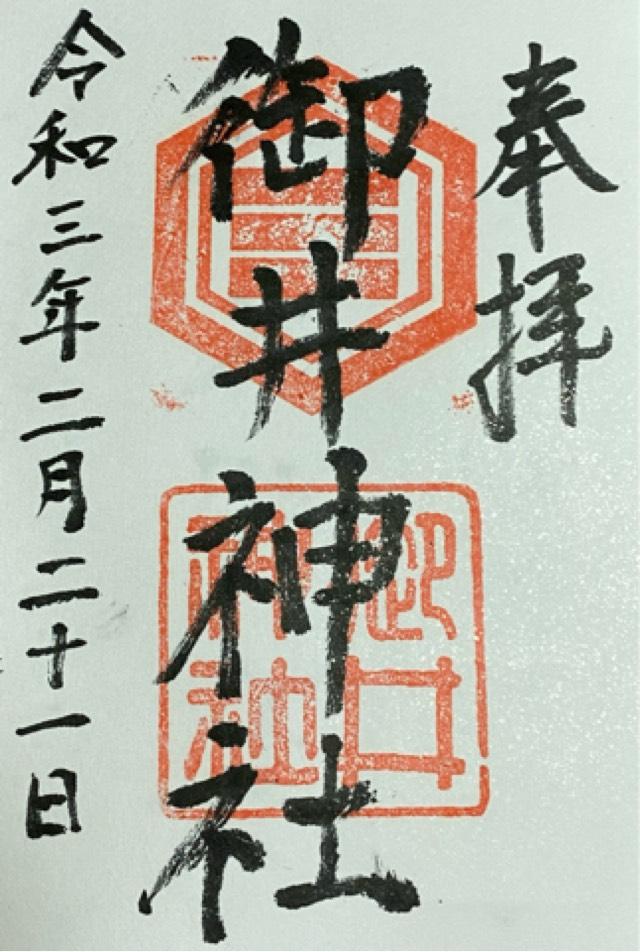 奉拝
御井神社
三
御井神社
令和三年二月二十一日